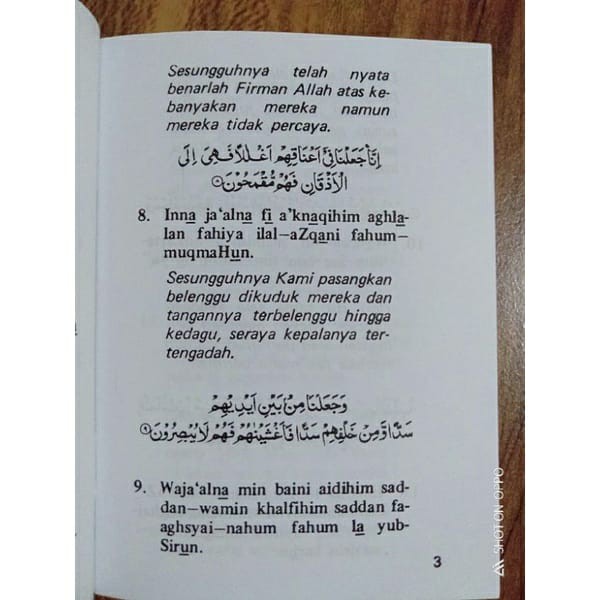 Sesungguhnya telah nyata
benarlah Firman Allah atas ke-
banyakan mereka namun
mereka tidak percaya.
إِنَّا جَعَلْنَا فِىٓ أَعْنَاقِهِمْ أَغْلَٰلًا فَهِىَ إِلَى
الْأَذْقَانِ فَهُمْ مُّقْمَحُوْنَ ۝٨
8. Inna ja'alna fi a'knaqihim aghla-
lan fahiya ilal—aZqani fahum—
muqmaHun.
Sesungguhnya Kami pasangkan
belenggu dikuduk mereka dan
tangannya terbelenggu hingga
kedagu, seraya kepalanya ter-
tengadah.
وَجَعَلْنَا مِنْۢ بَيْنِ اَيْدِيْهِمْ
سَدًّا وَّمِنْ خَلْفِهِمْ سَدًّا فَاَغْشَيْنٰهُمْ فَهُمْ لَا يُبْصِرُوْنَ ۝٩
9. Waja'alna min baini aidihim sad-
dan—wamin khalfihim saddan fa-
aghsyai—nahum fahum la yub-
Sirun.
3
SHOT ON OPPO